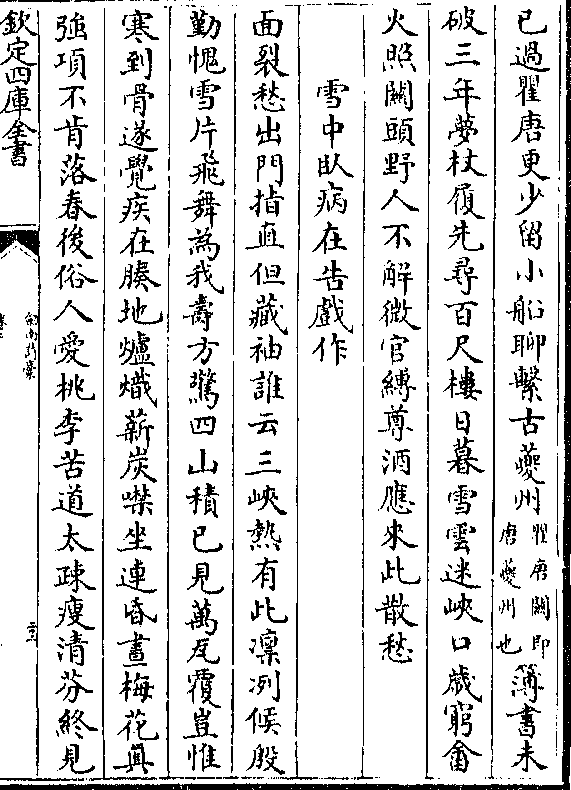 已過瞿唐更少留小船聊繫古夔州瞿唐關即唐夔州也簿書未
破三年夢杖屨先尋百尺樓日暮雪雲迷峽口歲窮畬
火照關頭野人不解微官縛尊酒應來此散愁
雪中臥病在告戲作
面裂愁出門指直但藏袖誰云三峽熱有此凜冽候殷
勤愧雪片飛舞為我壽方驚四山積已見萬瓦覆豈惟
寒到骨遂覺疾在腠地爐熾薪炭噤坐連昏晝梅花真
強項不肯落春後俗人愛桃李苦道太疎瘦清芬終見
欽定四庫全書
劍南詩稾